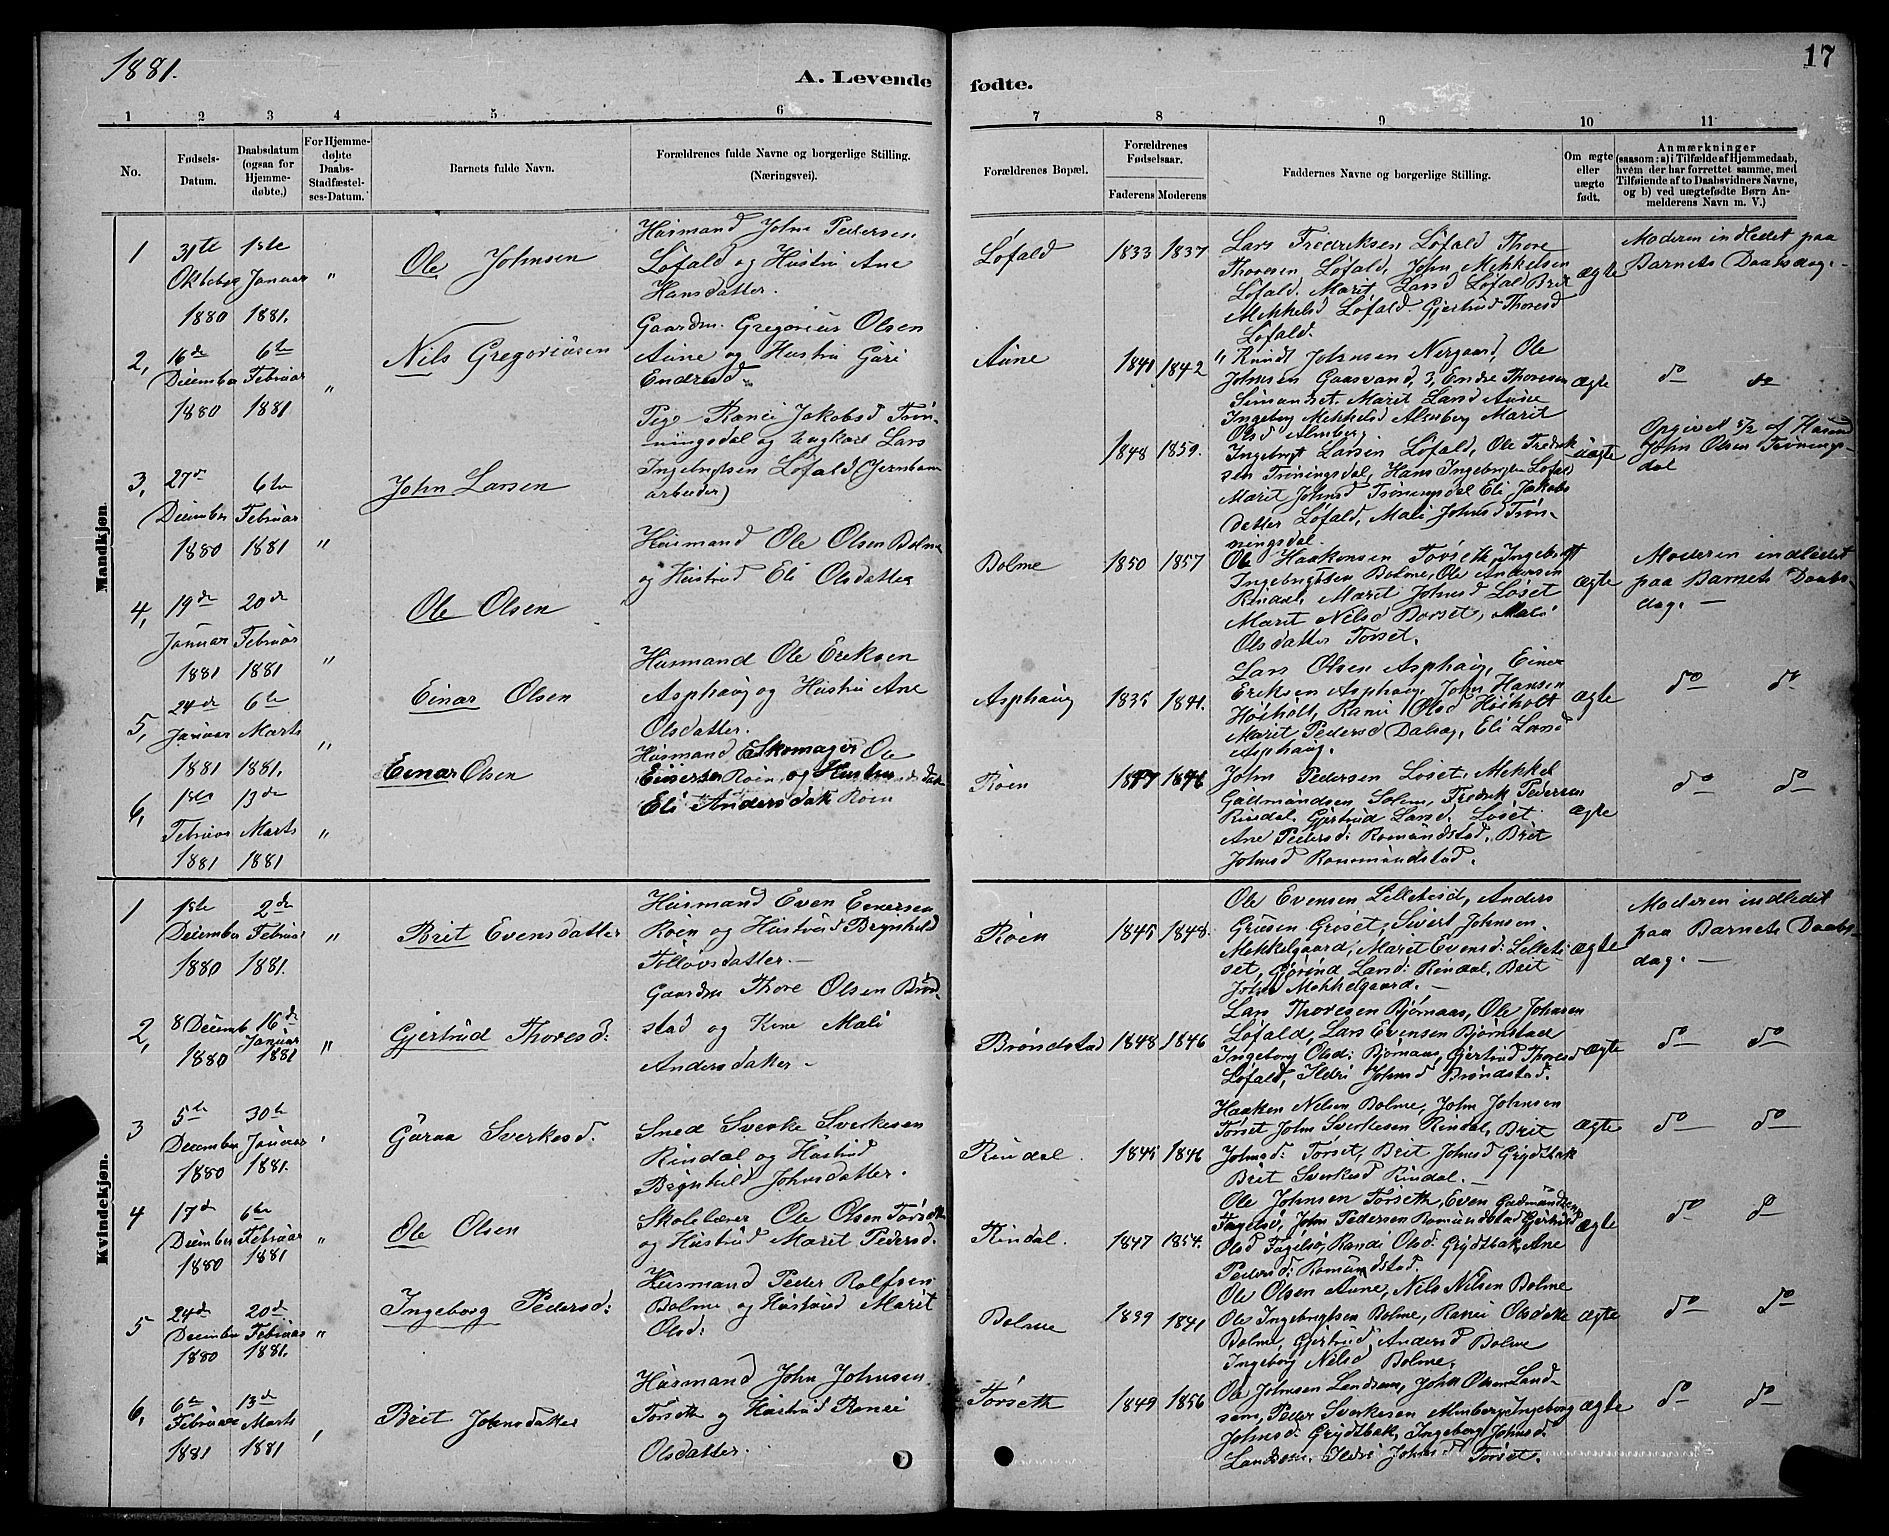 1881.
A. Levende
fødte.
17
1
2
3
4
5
6
7
8
9
10
11
No.
Fødsels-
Datum.
Daabsdatum
(ogsaa for
Hjemme-
døbte.)
For Hjemme-
døbte
Daabs-
Stadfæstel-
ses-Datum.
Barnets fulde Navn.
Forældrenes fulde Navne og borgerlige Stilling.
(Næringsvei).
Forældrenes Bopæl.
Forældrenes
Fødselsaar.
Faderens
Moderens
Faddernes Navne og borgerlige Stilling.
Om ægte
eller
uægte
født.
Anmærkninger
(saasom: a) i Tilfælde af Hjemmedaab,
hvem der har forrettet samme, med
Tilføiende af to Daabsvidners Navne,
og b) ved uægtefødte Børn An-
melderens Navn m. V.)
Mandkjøn.
1
31te
Oktober
1880
1ste
Januar
1881.
"
Ole Johnsen
Husmand John Pedersen
Løfald og Hustru Ane
Hansdatter.
Løfald
1833
1837
Lars Fredriksen Løfald Thore
Thoresen Løfald, John Mekkelsen
Løfald. Marit Larsd Løfald Brit
Mekkelsd Løfald. Gjertrud Thoresd
Løfald.
ægte
Moderen indledet paa
Barnets Daabsdag.
2,
16de
Deicember
1880
6te
Februar
1881
"
Nils Gregoriusen
Gaardm. Gregorius Olsen
Aune og Hustru Guri
Endresd.
Aune
1841
1842
" Knudt Johnsen Nergaard, Ole
Johnsen Gaasvand, 3, Endre Thoresen
Simundset. Marit Larsd Aune
Ingeborg Mekkelsd Almberg Marit
Olsd Almberg.
ægte
do do
3,
27de
Deicember
1880
6te
Februar
1881
"
John Larsen
Pige Ranei Jakobsd Trøn-
ningsdal og Ungkarl Lars
Ingebrigtsen Løfald (Jernbane
arbeider)
1848
1859.
Ingebrigt Larsen Løfald, Ole Fredrik-
sen Trøningsdal, Hans Ingebrigtsen Løfald
Marit Johnsd Trøningsdal Eli Jakobs
datter Løfald, Mali Johnsd Trøn-
ningsdal.
uægte
Opgivet 5/2 af Husmd
John Olsen Trønings-
dal
4,
19de
Januar
1881
20de
Februar
1881
"
Ole Olsen
Husmand Ole Olsen Bolme
og Hustrud Eli Olsdatter
Bolme
1850
1857
Ole Haakensen Torseth, Ingebrigt
Ingebrigtsen Bolme, Ole Andersen
Rindal, Marit Johnsd Løset
Marit Nilsd Borset, Mali
Olsdatter Torset.
ægte
Moderen indledet
paa Barnets Daabs-
dag. —
5,
24de
Januar
1881
6te
Marts
1881.
"
Einar Olsen
Husmand Ole Eriksen
Asphaug og Hustru Ane
Olsdatter.
Asphaug
1835
1841.
Lars Olsen Asphaug, Einer
Eriksen Asphaug, John Hansen
Høiholt, Ranei Olsd Høiholt
Marit Pedersd Dalsæg, Eli Larsd
Asphaug.
ægte
do do
6,
1ste
Februar
1881
13de
Marts
1881
"
Einar Olsen
Husmand Skomager Ole
Einersen Røen og Hustru
Eli Andersdatr Røen
Røen
1847
1846
John Pedersen Løset, Mekkel
Gudmundsen Solem, Fredrik Pedersen
Rindal. Gjertrud Larsd. Løset
Ane Pedersd: Romundstad. Brit
Johnsd Rommundstad.
ægte
do do
Kvindekjøn.
1
1ste
Deicember
1880
2de
Februar
1881.
"
Brit Evensdatter
Husmand Even Einersen
Røen og Hustrud Brynhild
Tollovsdatter. —
Røen
1845
1848.
Ole Evensen Lilletesd, Anders
Griesen Grøset, Sivert Johnsen
Mekkelgaard, Marit Evensd: Lillete-
set, Gjørond Larsd: Rindal, Brit
Johnsd Mekkelgaard. —
ægte
Moderen indledet
paa Barnets Daabs-
dag. —
2,
8 Deicemb
1880
16de
Januar
1881
"
Gjertrud Thoresd:
Gaardm Thore Olsen Brønd-
stad og Kone Mali
Andersdatter —
Brøndstad
1848
1846
Lars Thoresen Bjørnaas, Ole Johnsen
Løfald, Lars Evensen Bjørnstad
Ingeborg Olsd: Bjørnaas, Gjertrud Thoresd
Løfald, Ildri Johnsd Brøndstad.
ægte
do do
3
5te
Deicember
1880
30te
Januar
1881.
'
Guraa Sverkesd.
Smed Sverke Sverkesen
Rindal og Hustrud
Brynhild Johnsdatter.
Rindal.
1845
1846
Haaken Nilsen Bolme, John Johnsen
Torset John Sverkesen Rindal, Brit
Johnsd: Torset, Brit Johnsd Grydtbak
Brit Sverkesd Rindal. —
ægte
do do
4
17de
Deicember
1880
6te
Februar
1881
"
Ole Olsen
Skolelærer Ole Olsen Torseth
og Hustrud Marit Pedersd.
Rindal.
1847
1854.
Ole Johnsen Torseth, Even Gudmundsen
Fagelsø, John Pedersen Romundstad Gjertrud
Olsd Fagelsø, Randi Olsd: Grydtbak, Ane
Pedersd: Romundstad.
ægte
do do
5
24de
Deicember
1880
20de
Februar
1881.
"
Ingeborg Pedersd:
Husmand Peder Rolfsen
Bolme og Hustrud Marit
Olsd:
Bolme
1839
1841
Ole Olsen Aune, Nils Nilsen Bolme
Ole Ingebrigtsen Bolme, Ranei Olsdatr
Bolme, Gjertrud Andersd Bolme
Ingeborg Nilsd Bolme.
ægte
do do
6,
6te
Februar
1881
13de
Marts
1881
'
Brit Johnsdatter
Husmand John Johnsen
Torseth og Hustrud Ranei
Olsdatter.
Torseth
1849
1856
Ole Johnsen Landsem, John Olsen Land-
sem, Peder Sverkesen Almberg, Ingeborg
Johnsd: Grydtbak, Ingeborg Johnsd
Landsem, Ildri Johnsd Torset.
ægte
do do